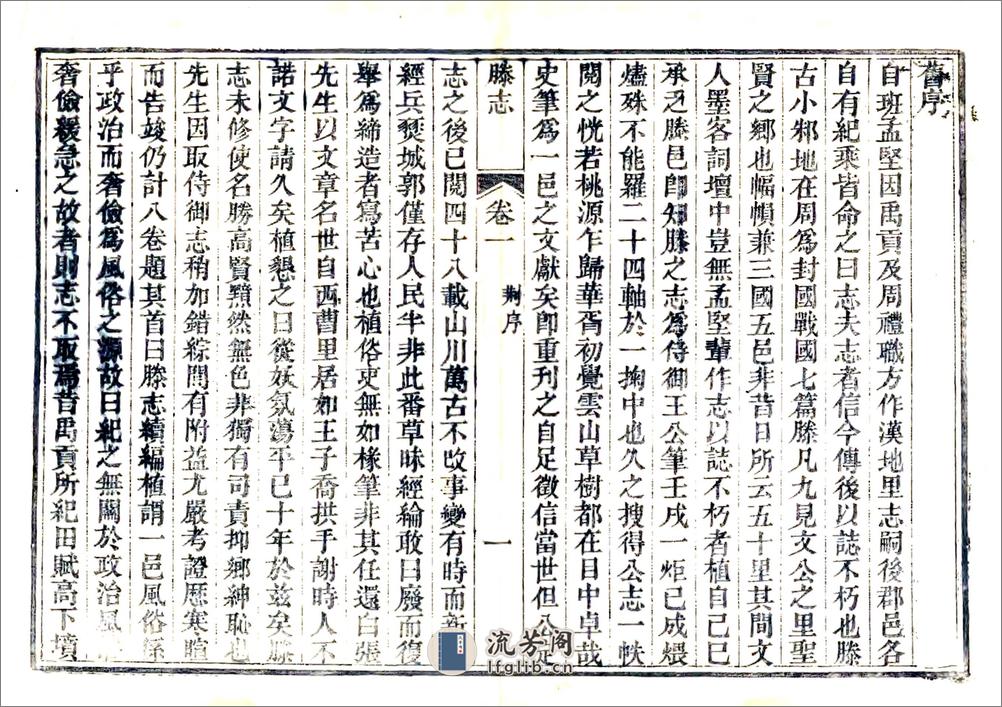 舊序
自班孟堅因禹貢及周禮職方作漢地里志嗣後郡邑各
自有紀乘皆命之曰志夫志者信今傳後以誌不朽也滕
古小邾地在周爲封國戰國七篇滕凡九見文公之里聖
賢之鄉也幅幀兼三國五邑非昔日所云五十里其間文
人墨客詞壇中豈無孟堅輩作志以誌不朽者植自己巳
承乏滕邑卽知滕之志爲侍御王公筆壬戌一炬已成煨
燼殊不能羅二十四軸於一掬中也久之搜得公志一帙
閱之恍若桃源乍歸華胥初覺雲山草樹都在目中卓哉
史筆爲一邑之文獻矣卽重刊之自足徵信當世但公
滕志
卷一
荆序
一
志之後已閱四十八載山川萬古不改事變有時而新
經兵燹城郭僅存人民半非此番草昧經綸敢曰廢而復
舉爲締造者寫苦心也植俗吏無如椽筆非其任還白張
先生以文章名世自西曹里居如王子喬拱手謝時人不
諾文字請久矣植懇之曰從妖氛蕩平已十年於茲矣滕
志未修使名勝高賢黯然無色非獨有司責抑鄉紳恥也
先生因取侍御志稍加錯綜間有附益尤嚴考證歷寒暄
而告竣仍計八卷題其首曰滕志續編植謂一邑風俗係
乎政治而奢儉爲風俗之源故曰紀之無關於政治風
奢儉緩急之故者則志不取焉昔禹貢所紀田賦高下墳
流芳阁
lfglib.cn